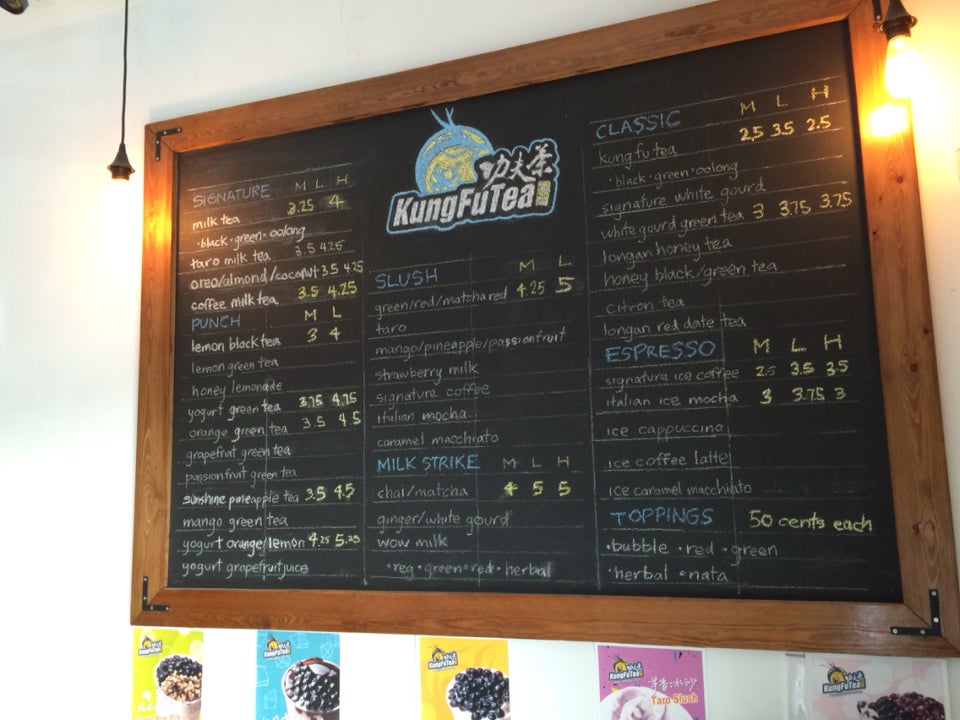 SIGNATURE M L H
milk tea 3.25 4
·black·green·oolong
taro milk tea 3.5 4.25
oreo/almond/coconut 3.5 4.25
coffee milk tea 3.5 4.25
PUNCH M L
lemon black tea 3 4
lemon green tea
honey lemonade
yogurt green tea 3.75 4.75
orange green tea 3.5 4.5
grapefruit green tea
passionfruit green tea
sunshine pineapple tea 3.5 4.5
mango green tea
yogurt orange/lemon 4.25 5.25
yogurt grapefruit juice
功夫茶
KungFuTea
SLUSH M L
green/red/matcha red 4.25 5
taro
mango/pineapple/passionfruit
strawberry milk
signature coffee
italian mocha
caramel macchiato
MILK STRIKE M L H
chai/matcha 4 5 5
ginger/white gourd
wow milk
·reg·green·red·herbal
CLASSIC M L H
kung fu tea 2.5 3.5 2.5
·black·green·oolong
signature white gourd
white gourd green tea 3 3.75 3.75
longan honey tea
honey black/green tea
citron tea
longan red date tea
ESPRESSO M L H
signature ice coffee 2.5 3.5 3.5
italian ice mocha 3 3.75 3
ice cappuccino
ice coffee latte
ice caramel macchiato
TOPPINGS 50 cents each
·bubble ·red ·green
·herbal ·nata
KungFuTea
KungFuTea
KungFuTea
KungFuTea
Taro Slush
KungFuTea